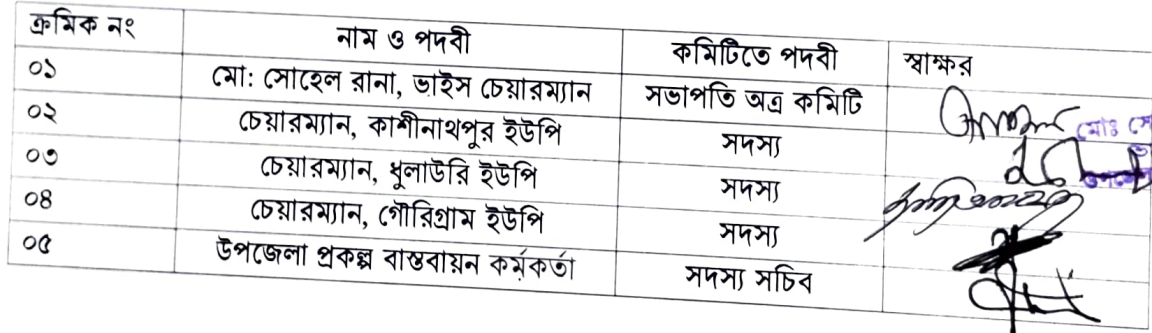 ক্রমিক নং নাম ও পদবী কমিটিতে পদবী স্বাক্ষর
০১ মো: সোহেল রানা, ভাইস চেয়ারম্যান সভাপতি অত্র কমিটি
০২ চেয়ারম্যান, কাশীনাথপুর ইউপি সদস্য
০৩ চেয়ারম্যান, ধুলাউরি ইউপি সদস্য
০৪ চেয়ারম্যান, গৌরিগ্রাম ইউপি সদস্য
০৫ উপজেলা প্রকল্প বাস্তবায়ন কর্মকর্তা সদস্য সচিব